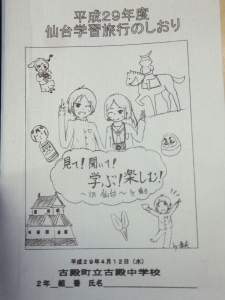 平成29年度
仙台学習旅行のしおり
見て!聞いて!
学ぶ!楽しむ!
~in 仙台~
平成29年4月12日(水)
古殿町立古殿中学校
2年__組__番 氏名